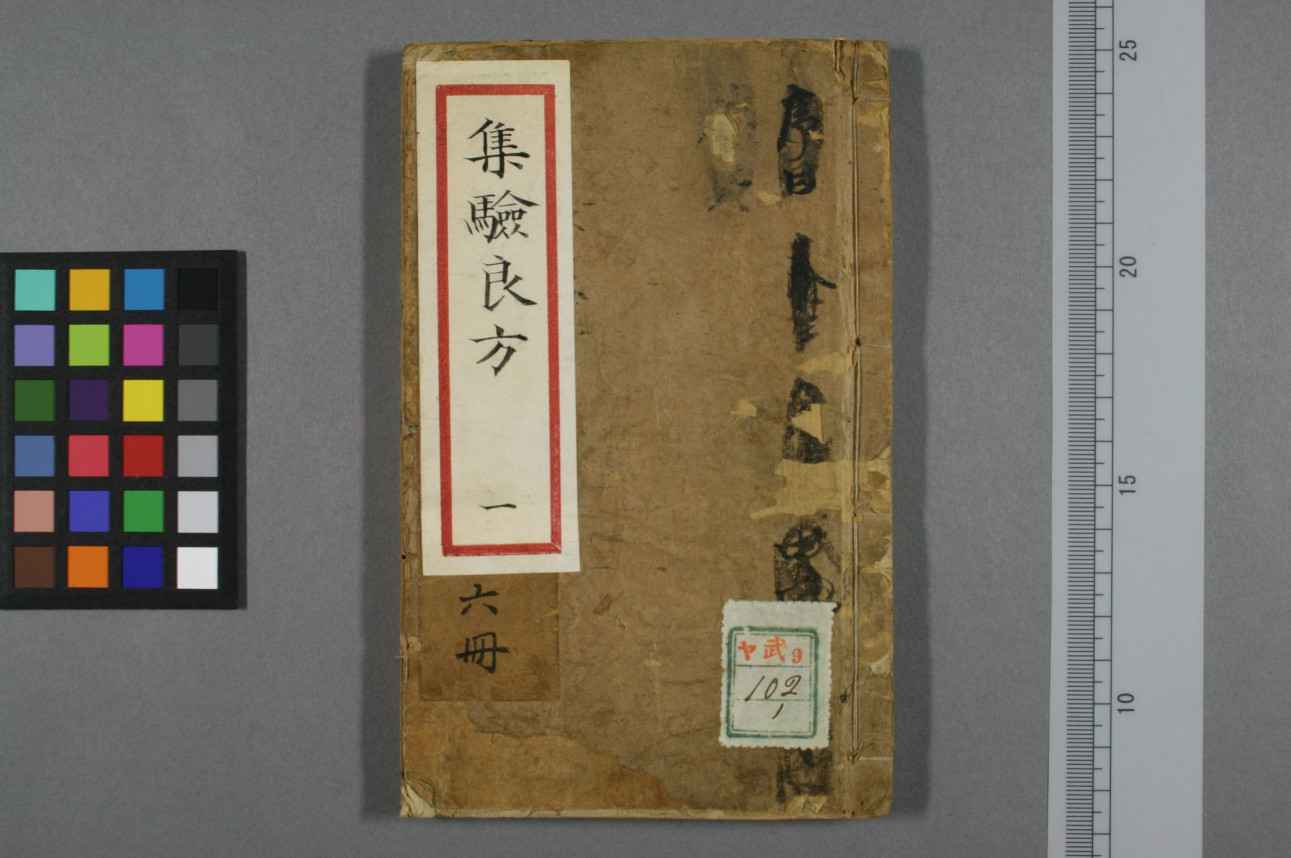 集驗良方
一
六冊
ヤ武9
102
1
25
20
15
10